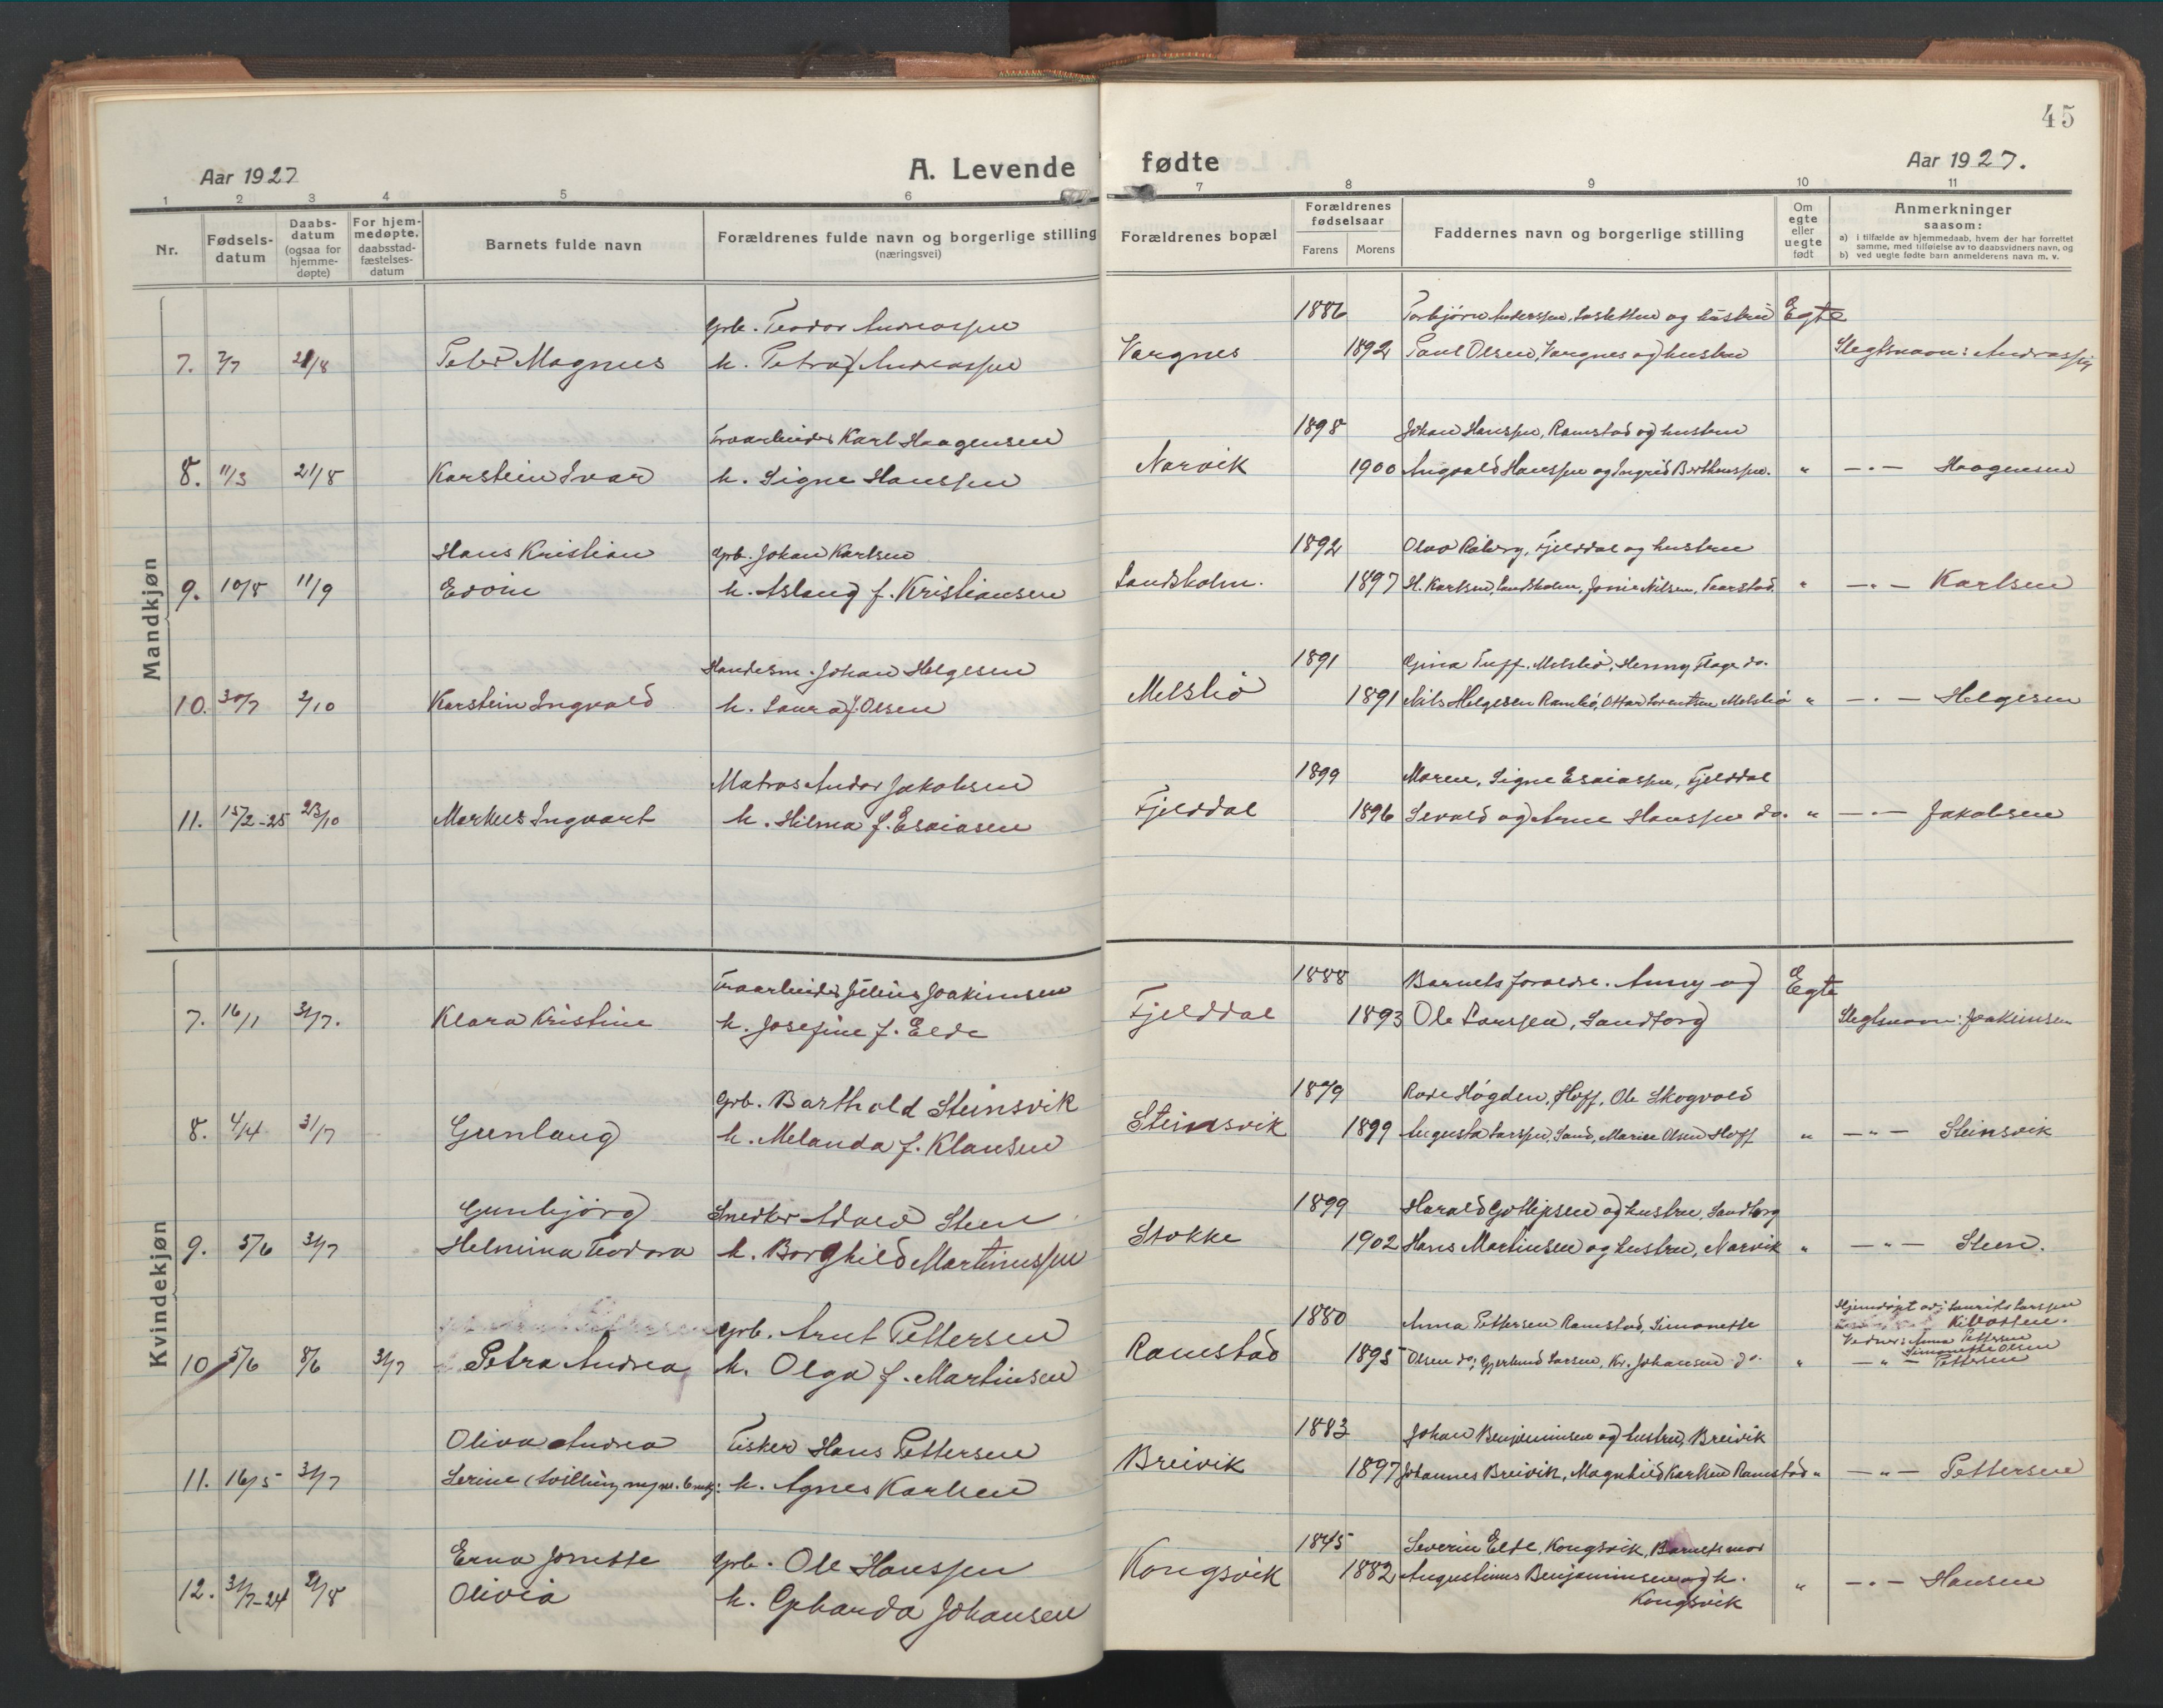 45
Aar 1927
A. Levende
fødte
Aar 1927.
1 2 3 4 5 6 7 8 9 10 11
Nr.
Fødsels-
datum
Daabs-
datum
(ogsaa for
hjemme-
døpte)
For hjem-
medøpte.
daabsstad-
fæstelses-
datum
Barnets fulde navn
Forældrenes fulde navn og borgerlige stilling
(næringsvei)
Forældrenes bopæl
Forældrenes
fødselsaar
Farens Morens
Faddernes navn og borgerlige stilling
Om
egte
eller
uegte
født
Anmerkninger
saasom:
a) i tilfælde av hjemmedaab, hvem der har forrettet
samme, med tilføielse av to daabsvidners navn, og
b) ved uegte fødte barn anmelderens navn m. v.
Mandkjøn
Grb. Teodor Andreassen 1886 Torbjørn Anderssen, og hustru Egte
7. 7/7 21/8 Peter Magnus h. Petra f. Andreassen Vargnes 1892 Paul Olsen, Vargnes og hustru Slegtsnavn: Andreassen
Traarbeider Karl Haagensen 1898 Johan Hanssen, Ramstad og hustru
8. 11/3 21/8 Karstein Ivar h. Signe Hanssen Narvik 1900 Angvald Hanssen og Ingrid Berthenssen. " — " — Haagensen
Hans Kristian Grb. Johan Karlsen 1892 Olav Råberg, Fjelddal og hustru
9. 10/8 11/9 Edvin h. Aslaug f. Kristiansen Sandsholm. 1897 H. Karlsen, Sandsholm, Nilsen, Taarstad. " — " — Karlsen
Handelsm. Johan Helgesen 1891 Gina Tuff, Melsbø, Henny Flage do.
10. 30/7 2/10 Karstein Ingvald h. Laura f. Olsen Melsbø 1891 Nils Helgesen Rambø, Ottar Lorentsen Melsbø " — " — Helgesen
Matros Andor Jakobsen 1899 Maren, Signe Esaiassen, Fjelddal
11. 15/2-25 23/10 Markus Ingvart h. Hilma f. Esaiasen Fjelddal 1896 Sevald og Arne Hanssen do. " — " — Jakobsen
Kvindekjøn
Traarbeider Julius Joakimsen 1888 Barnets foreldre. Anny og Egte
7. 16/1 31/7. Klara Kristine h. Josefine f. Elde Fjelddal 1893 Ole Larssen, Sandtorg Slegtsnavn: Joakimsen
Grb. Barthold Steinsvik 1879 Høgden, Hoff, Ole Skogvold
8. 4/4 31/7 Gunlaug h. Melanda f. Klausen Steinsvik 1899 Augusta Larssen, Sand, Marie Olsen Hoff " — " — Steinsvik
Gunbjörg Snedker Steen 1899 Harald Gotlipsen og hustru, Sandtorg
9. 5/6 31/7 Helmina Teodora h. Borghild Martinussen Stokke 1902 Hans Martinsen og hustru, Narvik " — " — Steen.
Grb. Arnt Pettersen 1880 Anna Pettersen Ramstad, Simonette Hjemdøpt av: Laurits Larssen
Kilbotten.
10 5/6 8/6 31/7 Petra Andrea h. Olga f. Martinsen Ramstad 1895 Olsen do; Gjertrud Larsen, Kr. Johansen do. " Vidner: Anna Pettersen
Simonette Olsen
— " — Pettersen
Oliva Andrea Fisker Hans Pettersen 1883 Johan Benjaminsen og hustru, Breivik
11. 16/5 31/7 Serine (tvilling m/nr. 6 mkj: h. Agnes Karlsen Breivik 1897 Johannes Breivik, Magnhild Karlsen Ramstad " — " — Pettersen
Erna Jonette Grb. Ole Hanssen 1875 Severin Elde, Kongsvik, Barnets mor
12. 31/7-24 21/8 Olivia h. Gebharda Johansen Kongsvik 1882 Augustinus Benjaminsen og h. " — " — Hansen
Kongsvik